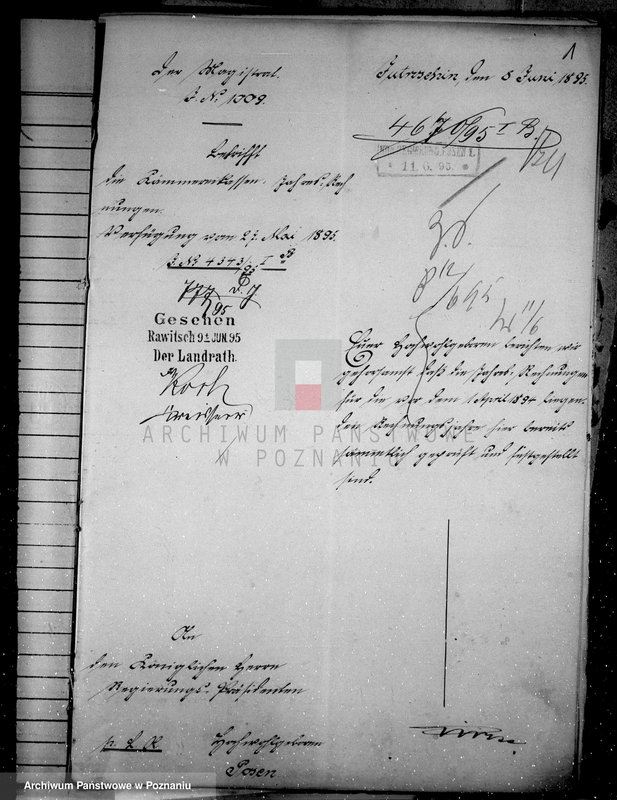 1
Der Magistrat.
J. No 1009.
Jutroschin, den 8 Juni 1895.
4676/95 I B.
11.6.95.
Betrifft
die Kämmereikassen-Jahres-Rech
nungen.
Verfügung vom 27. Mai 1895.
J. No 4343/95 I B
Gesehen
Rawitsch 9t JUN. 95
Der Landrath.
Euer Hochwohlgeboren berichten wir
gehorsamst daß die Jahres-Rechnungen
für die vor dem 1 April 1894 liegen-
den Rechnungsjahre hier bereits
sämmtlich geprüft und festgestellt
sind.
ARCHIWUM PAŃSTWOWE
W POZNANIU
An
den Königlichen Herrn
Regierungs-Präsidenten
Hochwohlgeboren
Posen
Archiwum Państwowe w Poznaniu